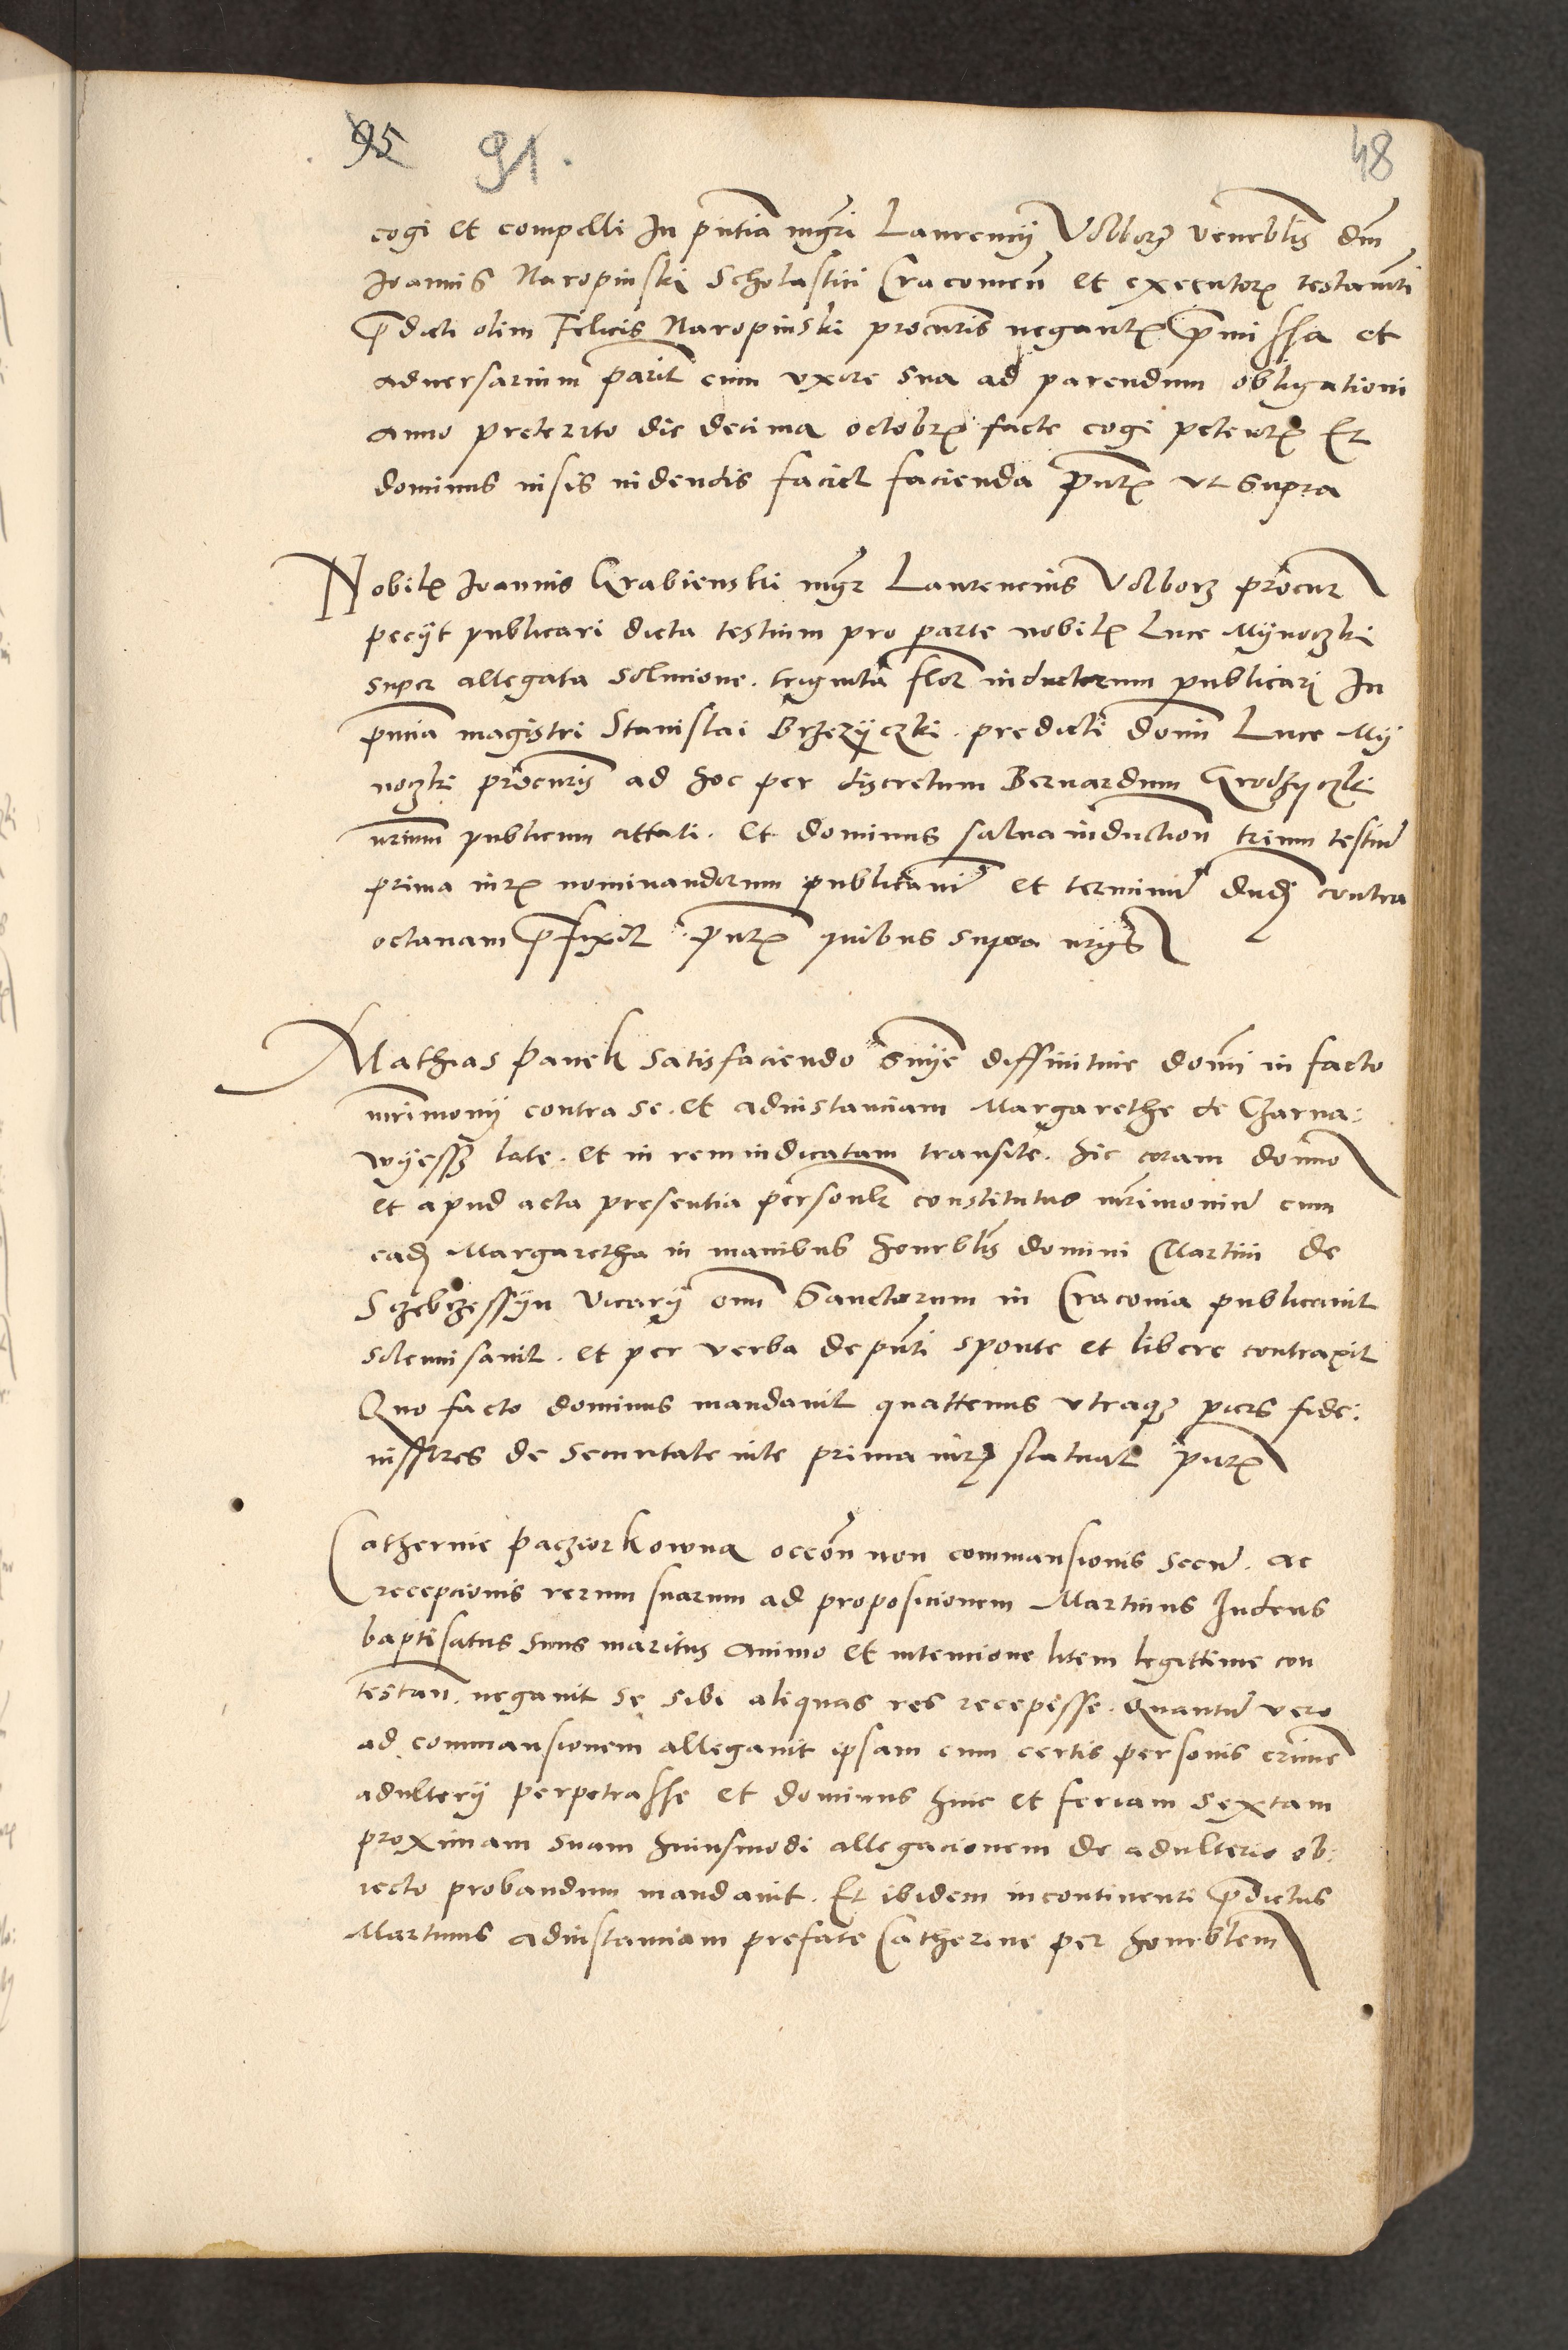 95 91. 48
cogi et compelli In pntia mgri Laurencij Volborz venerblis dni
Joannis Naropinski Scholastici Cracouien et executor testamti
pdicti olim Felicis Naropinski procuris negantis pmissa et
aduersarium parit cum vxore sua ad parendum obligationi
anno preterito die decima octobris facte cogi petentis Et
dominus visis videndis faciet facienda pntibus vt supra
Nobilis Joannis Grabienski mgr Laurencius Volborz procur
pecijt publicari dicta testium pro parte nobilis Luce Mijnoczki
super allegata solucione. triginta flor inductorum publicari In
pncia magistri Stanislai Brzezyczki. predicti domini Luce Mij
noczki procuris ad hoc per discretum Bernardum Grodzyczki
nrium publicum cittati. et dominus salua induction trium testium
prima iuris nominandorum publicauit et terminum ducendi contra
octauam pfixit. pntibus quibus supra nrijs
Mathias Panek satisfaciendo snije diffinitiue domini in facto
mrimonij contra se. et adinstanciam Margarethe de Czarna:
wyessz late. et in rem iudicatam transite. hic coram domino
et apud acta presentia personlr constitutus mrimonium cum
eadem Margaretha in manibus honorblis domini Martini de
Sczebrzessyn vicarij omnium Sanctorum in Craconia publicauit
solemnisauit. et per verba de pnti sponte et libere contraxit
Quo facto dominus mandauit quattenus vtraque pars fidei:
iussores de securitate vite prima iuris statuat pntibus
Catherine Paczorkowna occon non commansionis secum. ac
recepcionis rerum suarum ad proposicionem Martinus Iudeus
baptisatus suus maritus animo et intencione litem legittime con
testan. negauit se sibi aliquas res recepisse. Quantum vero
ad commansionem allegauit ipsam cum certis personis crimen
adulterij perpetrasse et dominus hinc et feriam sextam
proximam suam huiusmodi allegacionem de adulterio ob:
iecto probandum mandauit. Et ibidem incontinenti pdictus
Martinus adinstanciam prefate Catherine per honorblem